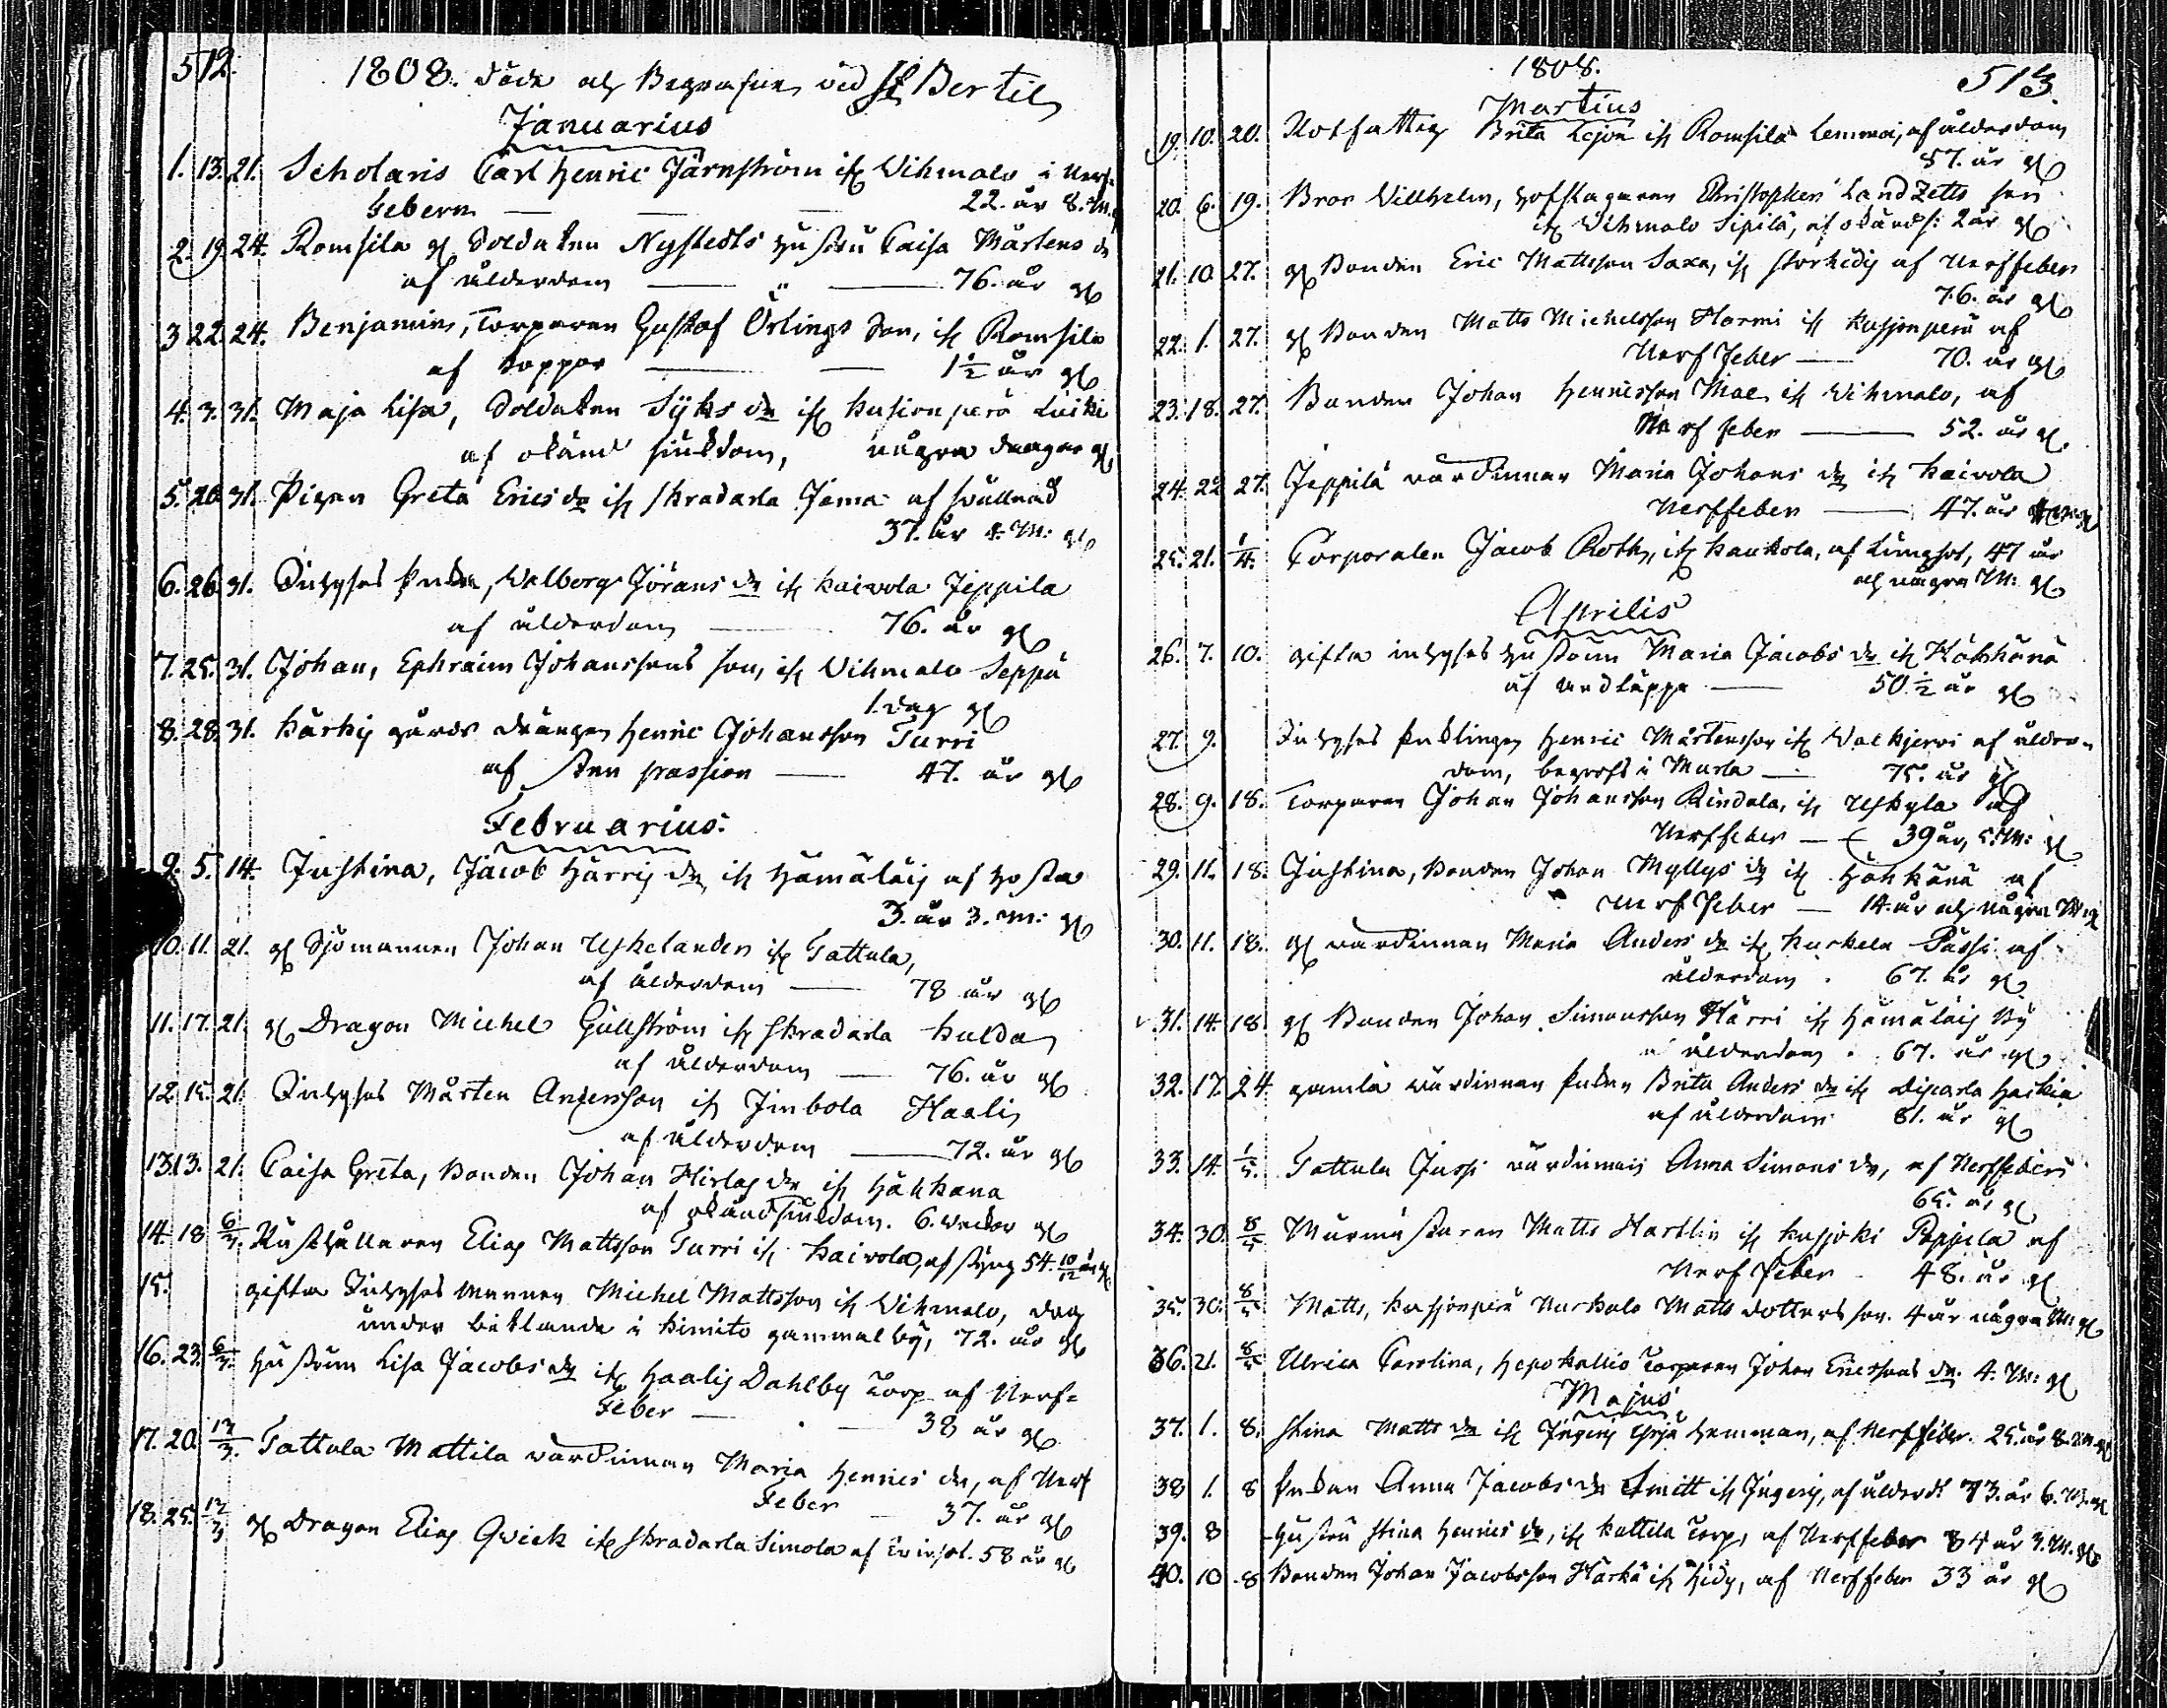 512.
1808. Döde och Begrafne, vid St Bertils
Januarius
1. 13. 21. Scholaris Carl Henric Järnström ifr. Vihmalo i Nerf-
Febern — — — 22. år 8. M.
2. 19. 24. Romsila gl. Soldaten Nystedts hustru Caisa Mårtens dr
af ålderdom — " — 76. år
3. 22. 24. Benjamin, Torparen Gustaf Örlings Son, ifr. Romsila
af koppor — — 1½ år
4. 3. 31. Maja Lisa, Soldaten Syks dr ifr. Kusionperä
af okänd sjukdom, några dagar
5. 20. 31. Pigan Greta Erics dr ifr. Skradarla Jäma af svullnad
37. år 4. M:
6. 26. 31. Inhyses Enkan, Walborg Jörans dr ifr. Kaivola Jeppila
af ålderdom — 76. år
7. 25. 31. Johan, Ephraim Johanssons son, ifr. Vihmalo Seppä
1. dag
8. 28. 31. Kärkis gårds drängen Henric Johansson Turri
af Sten passion — 47. år
Februarius.
9. 5. 14. Justina, Jacob Härris dr, ifr. Hämäläis af hosta
3. år 3. M:
10. 11. 21. gl. Sjömannen Johan Uskelander ifr. Tattula,
af ålderdom — 78 år
11. 17. 21. gl. Dragon Michel Gullström ifr. Skradarla Hulda
af ålderdom — 76. år
12. 15. 21. Inhyses Mårten Andersson ifr. Jinbola Haalis
af ålderdom — 72. år
13. 13. 21. Caisa Greta, Bonden Johan Hirlas dr ifr. Häkkänä
af okänd sjukdom. 6. veckor
14. 18 6/3. Rusthållaren Elias Mattsson Turri ifr. Kaivola, af styng 54. 10/12 år
15. gifta Inhyses mannen Michel Mattsson ifr. Vihmalo, dog
under betlande i Kimito gammelby, 72. år
16. 23. 6/3. hustrun Lisa Jacobs dr ifr. Haalis Dahlby Torp af Nerf=
Feber — — 38 år
17. 20. 13/3. Tattula Mattila värdinnan Maria Henrics dr, af Nerf
Feber — 37. år
18. 25. 13/3 gl. Dragon Elias Qvick ifr. Skradarla Simola af 58 år
1808.
513.
Martius
19. 10. 20. Rotfattig Brita Lejon ifr. Romsila Lemmoi, af ålderdom
87. år
20. 6. 19. Bror Villhelm, hofslagaren Christopher LandZetts son
ifr. Vihmalo Sipilä, af okänd s: 2 år
21. 10 27. gl. Bonden Eric Mattsson Saxa, ifr. Storhidis af Nerffeber
76. år
22. 1. 27. gl. Bonden Matts Michelsson Harmi ifr. Kusjonperä af
Nerf Feber — 70. år
23. 18. 27. Bonden Johan Henricsson Mae ifr. Vihmalo, af
Nerf feber — 52. år
24. 22 27. Jeppilä värdinnan Maria Johans dr ifr. Kaivola
Nerffeber — 47. år
25. 21. 1/4. Corporalen Jacob Roth, ifr. Kaukola, af Lungsot, 47 år
och några M:
Aprilis
26. 7. 10. gifta inhyses hustrun Maria Jacobs dr ifr. Häkkänä
af andtäppa — 50 ½ år
27. 9. Inhyses Enklingen Henric Mårtensson ifr. Valkjervi af ålder-
dom, begrofs i Murla — 75. år
28. 9. 18. Torparen Johan Johansson Rindala, ifr. Uskyla af
Nerffeber — 39 år, 5. M:
29. 11. 18. Justina, Bonden Johan Myllys dr ifr. Häkkänä af
Nerf Feber — 14. år och några M:
30. 11. 18. gl. värdinnan Maria Anders dr ifr. Kurkela Pässi af
ålderdom. 67. år
31. 14. 18 gl. Bonden Johan Simonsson Härri ifr. Hämäläis by
ålderdom. 67. år
32. 17. 24 gamla värdinnan Enkan Brita Anders dr ifr. Diparla Heikia
af ålderdom 81. år
33. 14. 1/5. Tattula Jussi värdinnan Anna Simons dr, af Nerffeber
65. år
34. 30. 8/5 Murmästaren Matts Hartlin ifr. Kusjoki Pappila af
Nerf Feber 48. år
35. 30. 8/5 Matts, Kusjonperä Markula Matts dotters son. 4 år några M:
36. 21. 8/5 Ulrica Carolina, Hepokallio Torparen Johan Ericssons dr. 4. M:
Majus
37. 1. 8. Stina Matts dr ifr. Ingeris Yrjä hemman, af Nerffeber. 25. år 8. M.
38. 1. 8 Enkan Anna Jacobs dr Smitt ifr. Ingeris, af ålderd: 73. år 6. M.
39. 8 Hustru Stina Henrics dr, ifr. Kattela Torp, af Nerffeber 34 år 3. M.
40. 10. 8 Bonden Johan Jacobsson Harkä ifr. Hidis, af Nerffeber 33 år